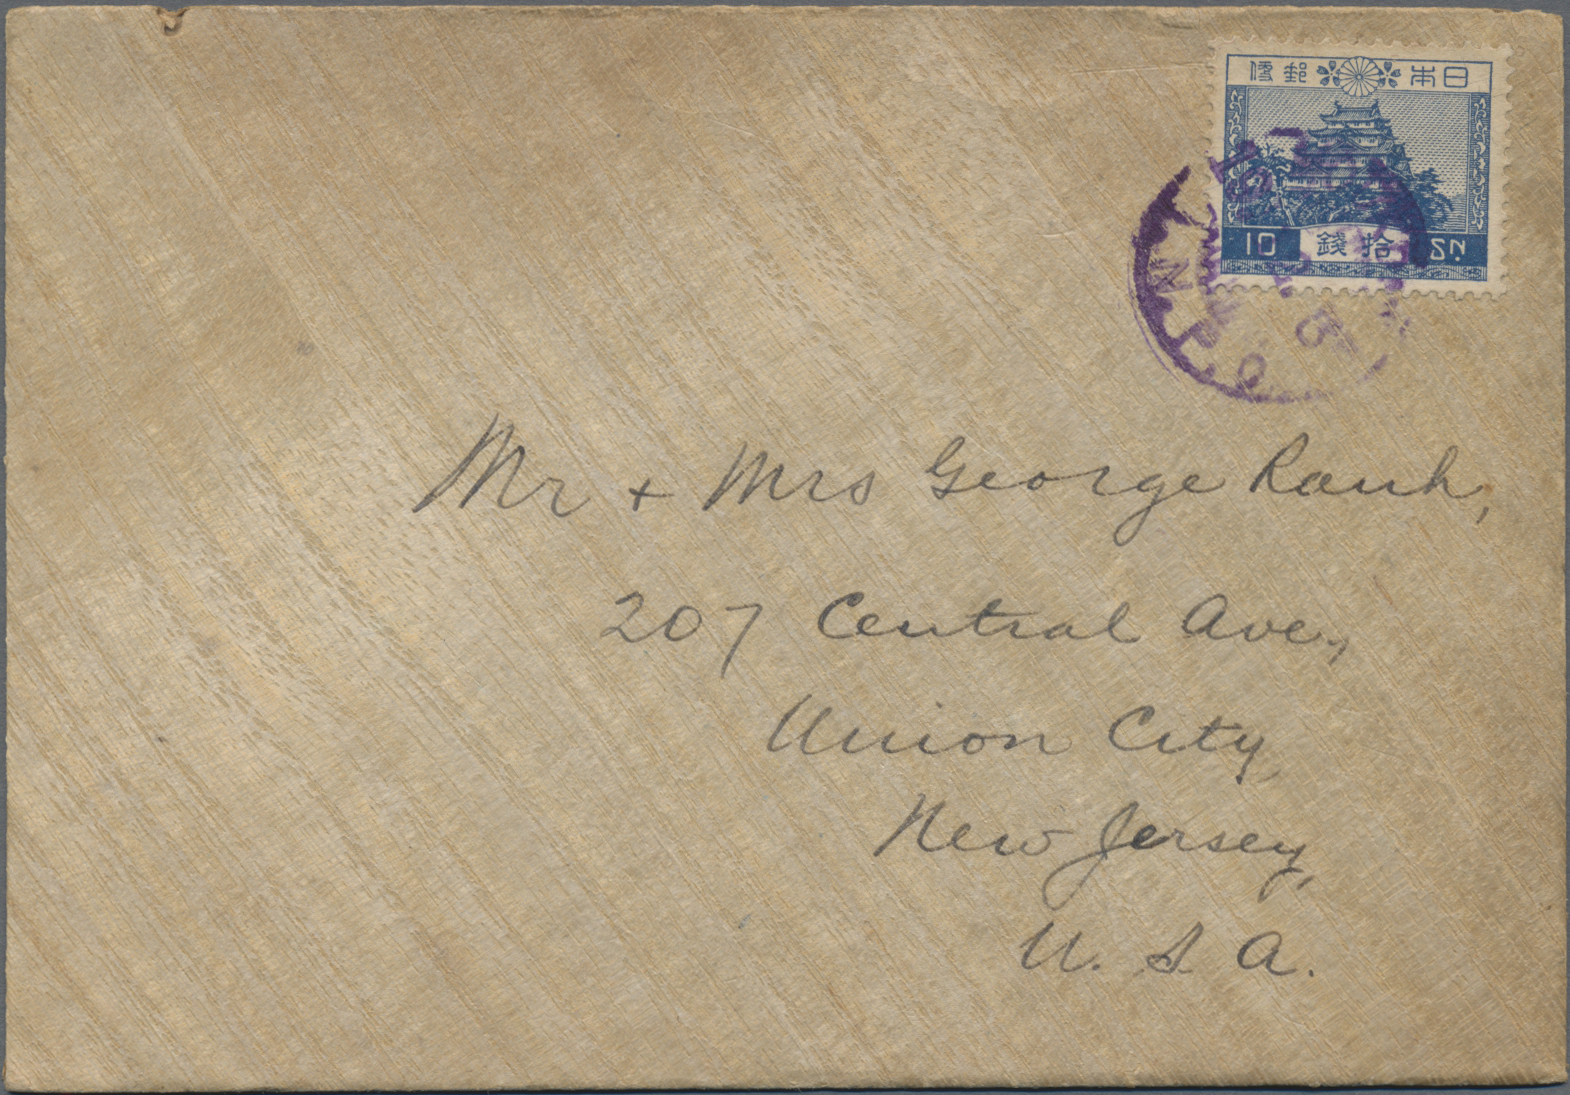 日本郵便
10 拾錢 Sn.
I.J.P.O.
Mr + Mrs George Rauh,
207 Central Ave.,
Union City,
New Jersey,
U. S. A.